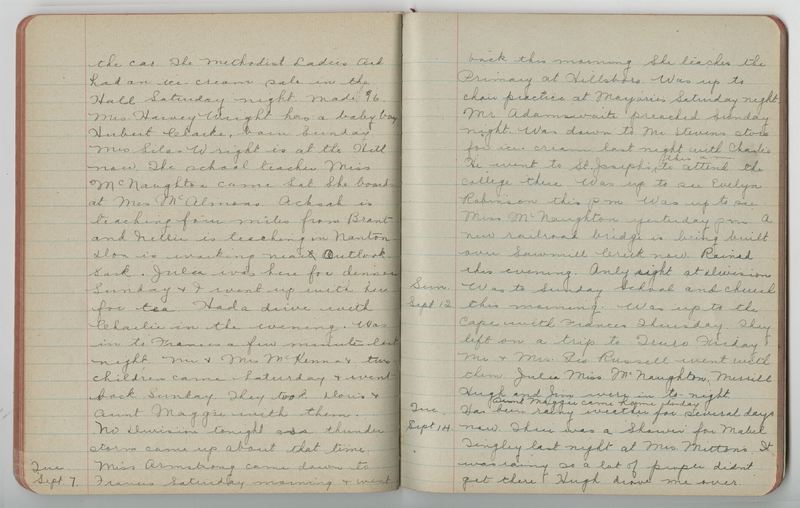 the car. The Methodist Ladies Aid
had an ice-cream sale in the
Hall Saturday night. Made 96.
Mrs. Harvey Wright has a baby boy
Hubert Clarke, born Sunday
Mrs Silas Wright is at the Hill
now. The school teacher Miss
McNaughton came Sat. She boards
at Mrs McAlmons. Achsah is
teaching four miles from Brant
and Nellie is teaching in Nanton
Don is working near Outlook
Sask. Julia was here for dinner
Sunday & I went up with her
for tea. Had a drive with
Charlie in the evening. Was
in to Frances a few minute last
night. Mr & Mrs McKenna & two
children came Saturday & went
back Sunday. They took Doris &
Aunt Maggie with them.
No Division tonight as a thunder
storm came up about that time.
Tue. Miss Armstrong came down to
Sept 7. Frances Saturday morning & went
back this morning She teaches the
Primary at Hillsboro. Was up to
choir practice at Marjories Saturday night.
Mr. Adamswaite preached Sunday
night. Was down to Mr Stevens store
for ice-cream last night with Charlie
He went to St. Josephs, this a— to attend the
college there Was up to see Evelyn
Robinson this p.m. Was up to see
Miss McNaughton yesterday p.m. A
new railroad bridge is being built
over Sawmill Creek now. Rained
this evening. Only eight at division
Sun. Was to Sunday School and church
Sept 12 this morning. Was up to the
Cape with Frances Thursday. They
left on a trip to Truro Friday
Mr. & Mrs. Russell went with
them. Julia Miss McNaughton, Merrill
Hugh and Jim were in to-night
(Aunt Maggie came home today)
Tue. Has been rainy weather for several days
Sept 14. now. There was a Shower for Mabel
Tingley last night at Mrs. Mittons. It
was rainy so a lot of people didn't
get there Hugh drove me over.